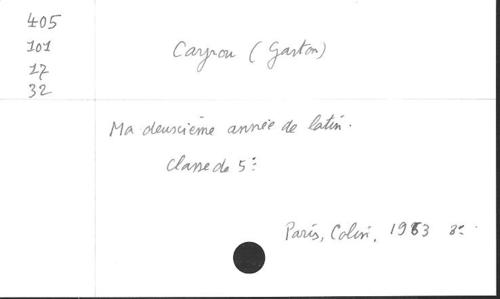 405
101
17
32
Cayrou (Gaston)
Ma deuxième année de latin.
Classe de 5e
Paris, Colin, 1963 8°.